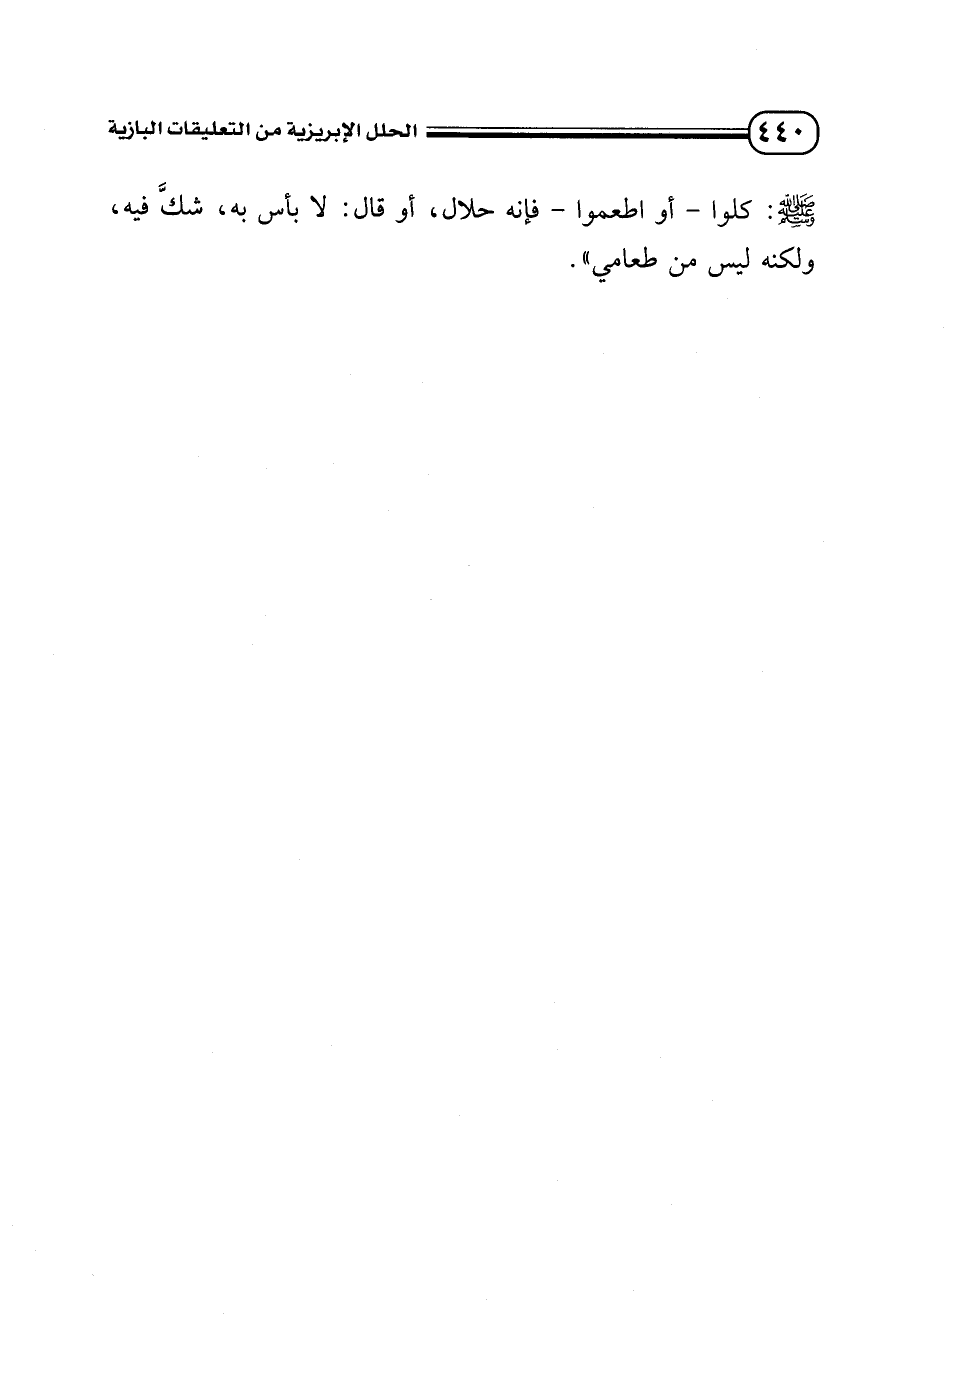 ٤٤٠ الحلل الإبريزية من التعليقات البازية
ﷺ: كلوا - أو اطعموا - فإنه حلال، أو قال: لا بأس به، شكَّ فيه،
ولكنه ليس من طعامي».